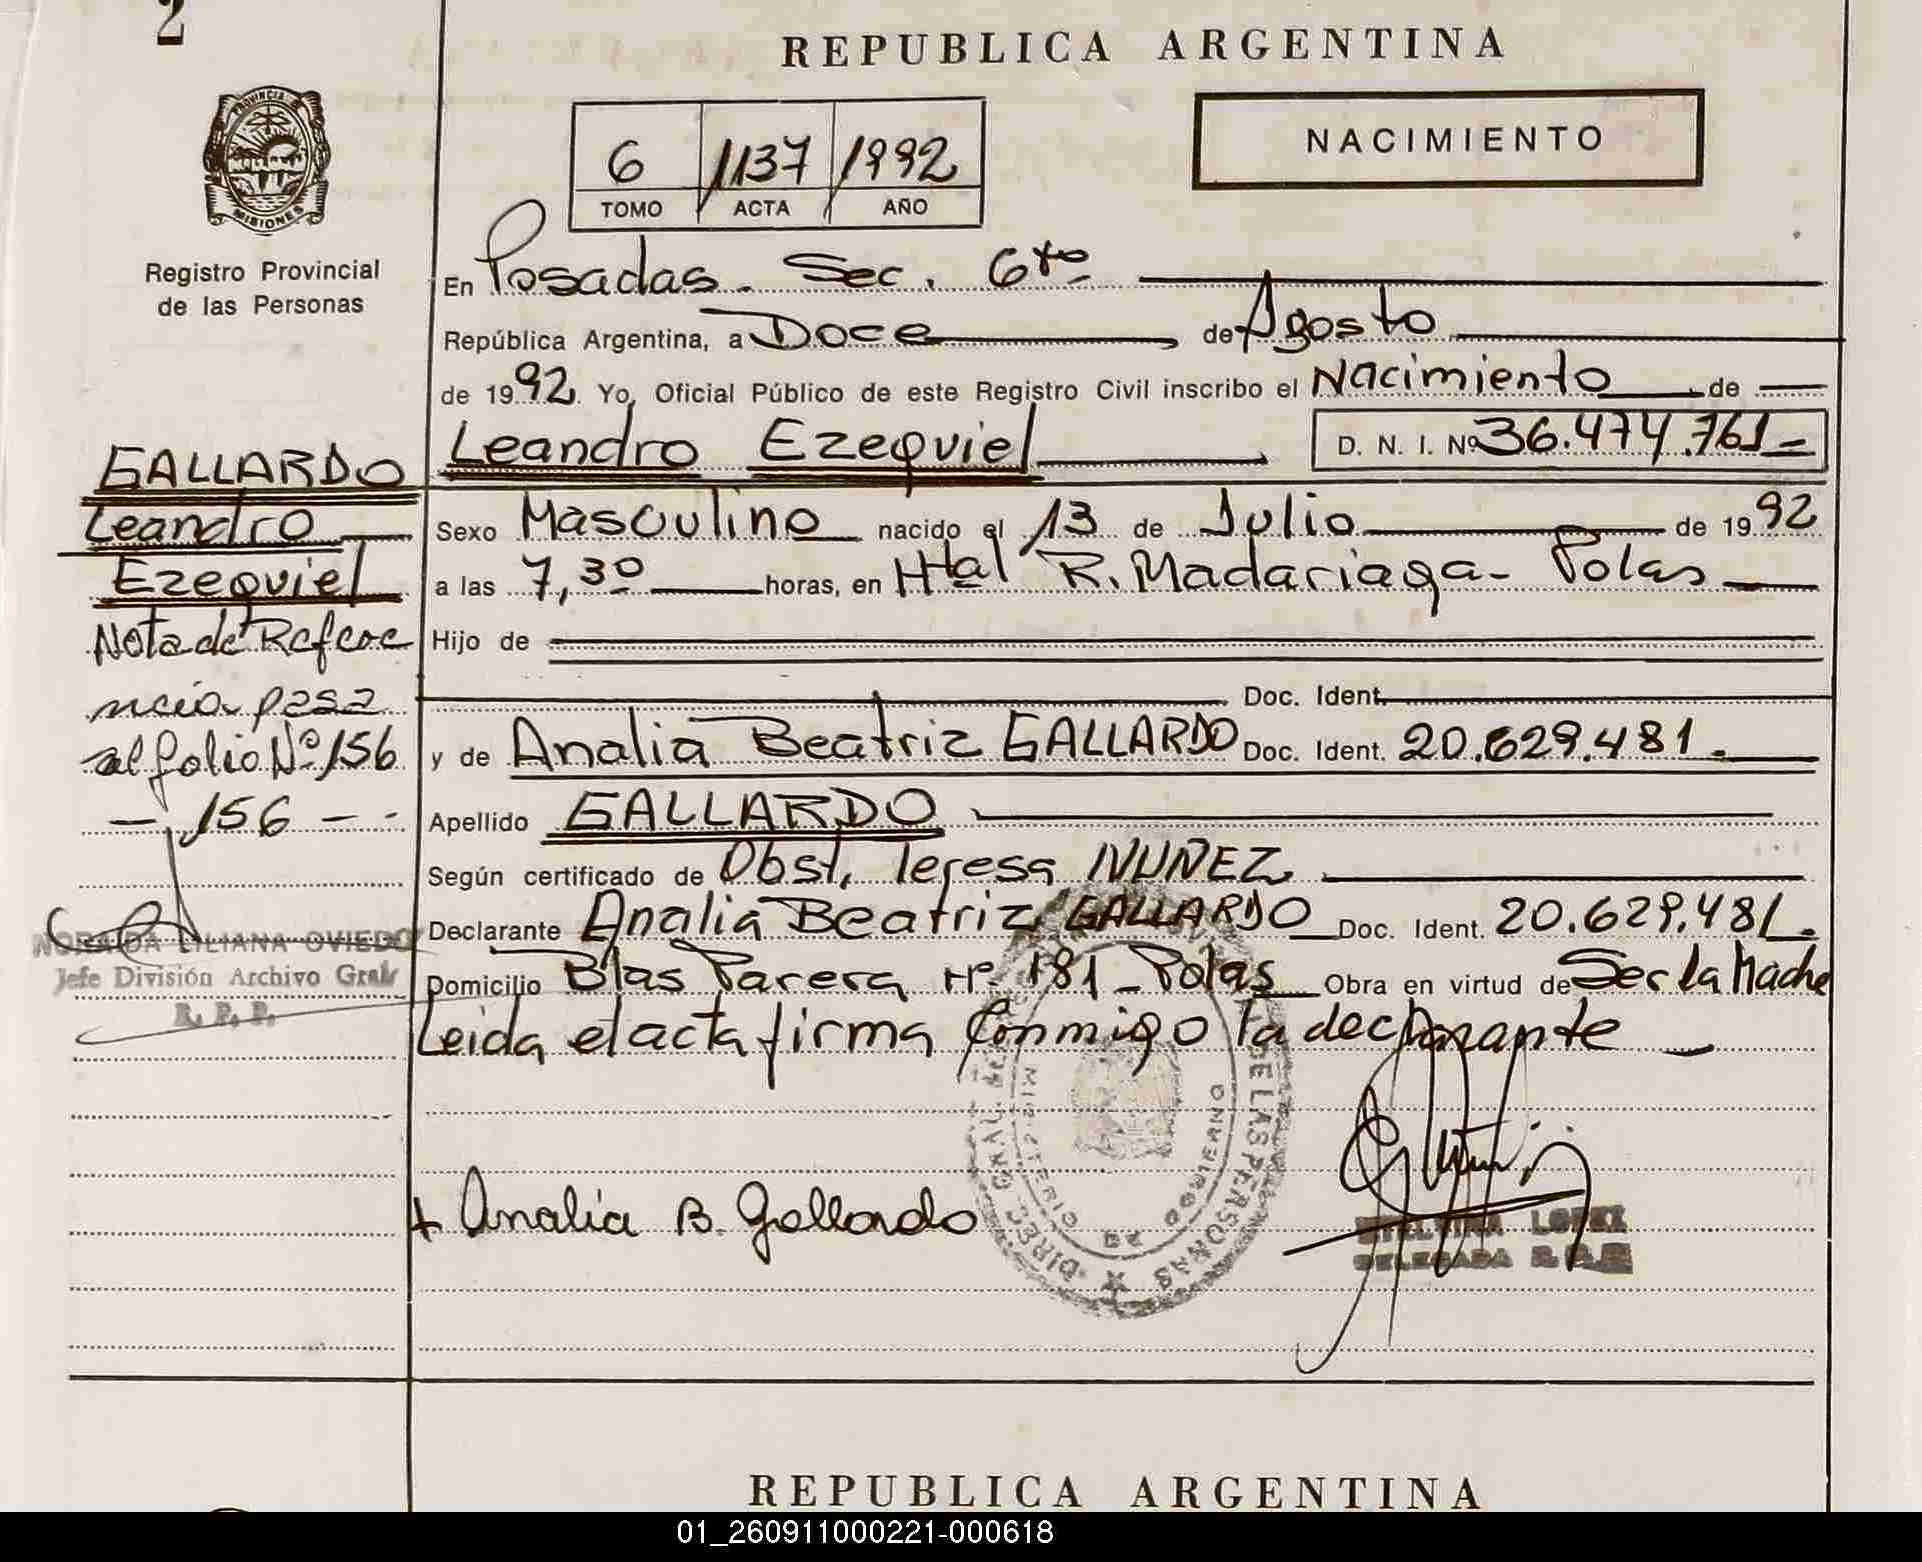 2
REPUBLICA ARGENTINA
NACIMIENTO
6 1137 1992
TOMO ACTA AÑO
PROVINCIA DE
MISIONES
Registro Provincial
de las Personas
En Posadas. Sec. 6ta
República Argentina, a Doce de Agosto
de 1992. Yo, Oficial Público de este Registro Civil inscribo el Nacimiento de
Leandro Ezequiel D. N. I. Nº 36.474.761
GALLARDO
Leandro
Ezequiel
Nota de Refere
ncia pasa
al folio Nº 156
- 156 - -
NORAIDA LILIANA OVIEDO
Jefe División Archivo Gral
R. P. P.
Sexo Masculino nacido el 13 de Julio de 1992
a las 7,30 horas, en Htal R. Madariaga - Pdas
Hijo de
Doc. Ident.
y de Analia Beatriz GALLARDO Doc. Ident. 20.629.481.
Apellido GALLARDO
Según certificado de Obst. Teresa NUÑEZ
Declarante Analia Beatriz GALLARDO Doc. Ident. 20.629.481.
Domicilio Blas Parera Nº 181 - Pdas Obra en virtud de Ser la Madre
Leida el acta firma conmigo la declarante
DIREC. GRAL. DE LAS PERSONAS
MINISTERIO DE GOBIERNO
+ Analia B. Gallardo
LOPEZ
DELEGADA R.P.P.
REPUBLICA ARGENTINA
01_260911000221-000618